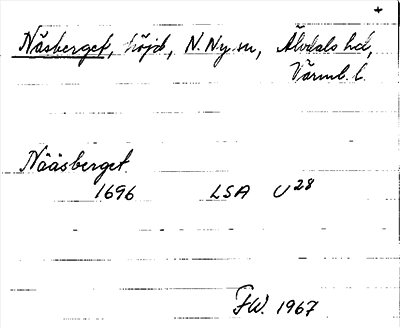 +
Näsberget, höjd, N. Ny sn, Älvdals hd,
Värml. l.
Nääsberget.
1696 LSA U 28
F.W. 1967